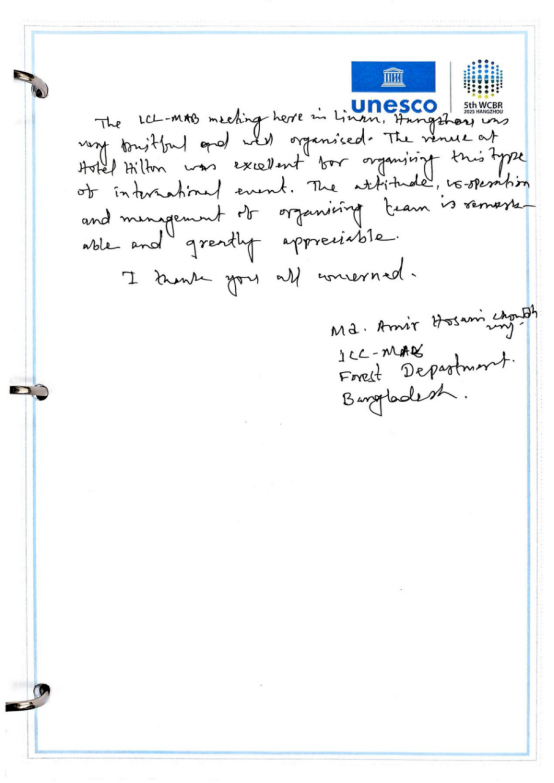 unesco
5th WCBR
2025 HANGZHOU
The ICC-MAB meeting here in Linan, Hangzhou was
very fruitful and well organised. The venue at
Hotel Hilton was excellent for organising this type
of international event. The attitude, co-operation
and management of organising team is remark-
able and greatly appreciable.
I thank you all concerned.
Md. Amir Hosain Chowdh
ury.
ICC-MAB
Forest Department.
Bangladesh.